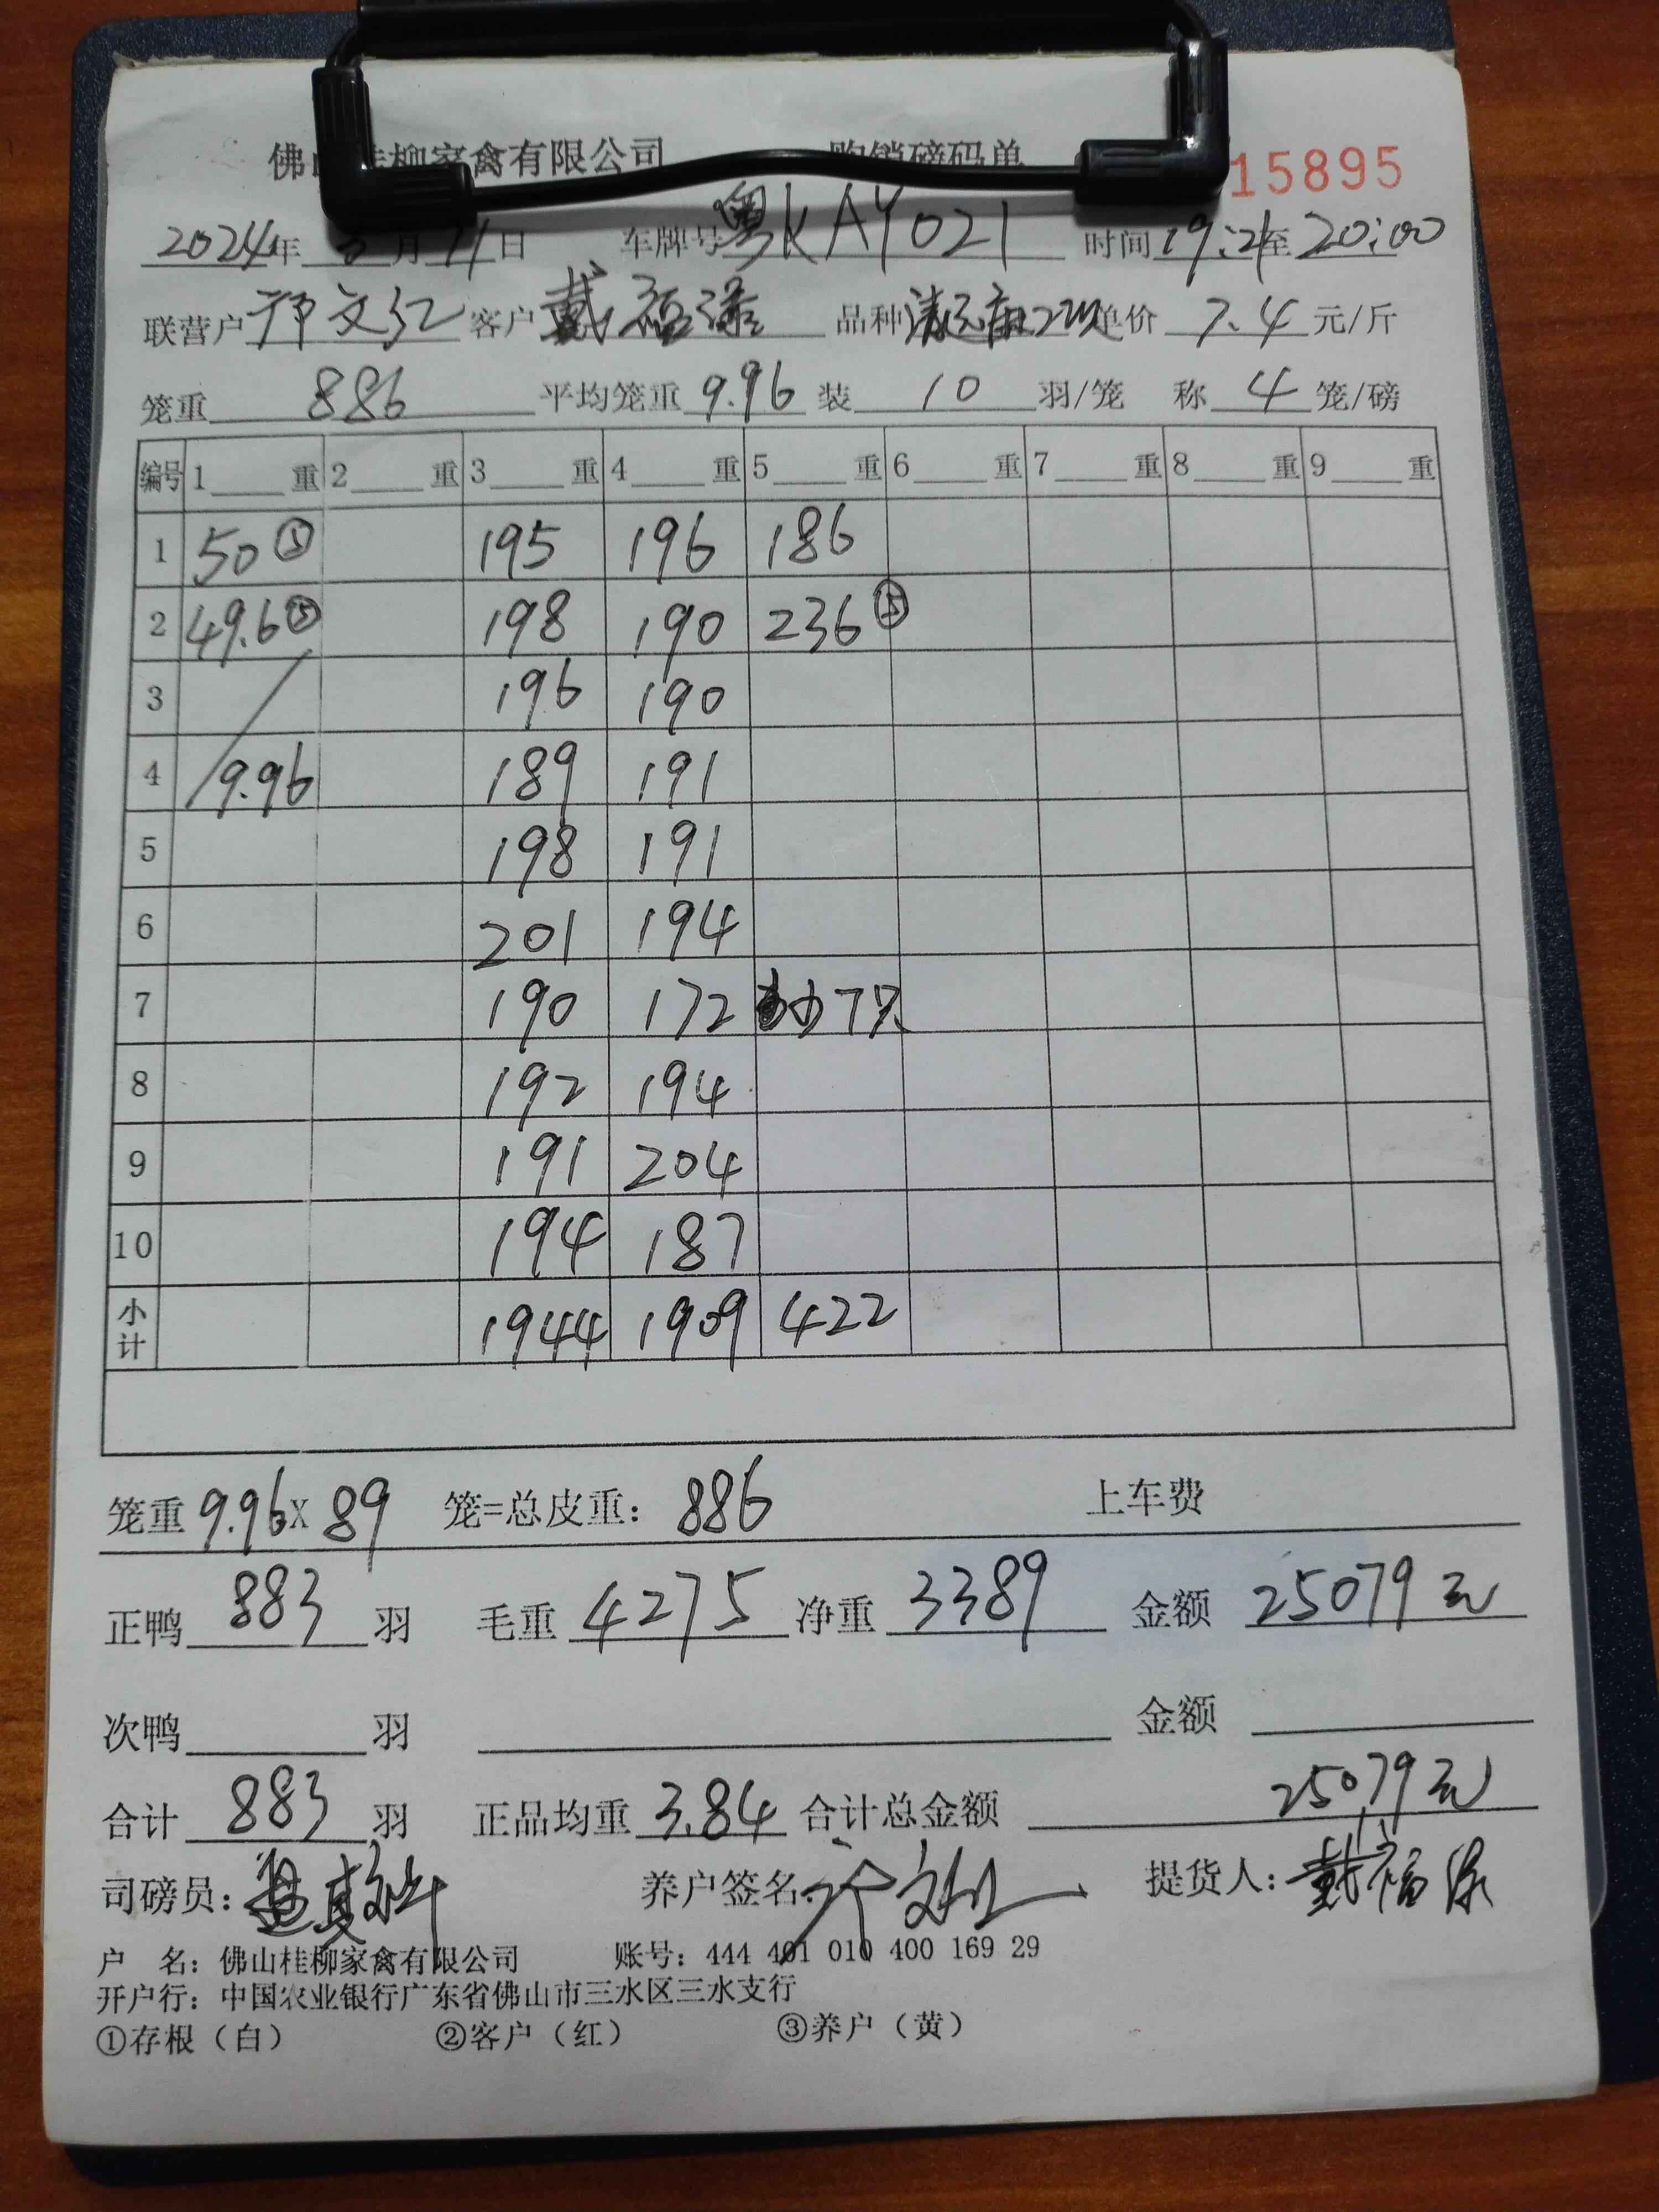 佛山桂柳家禽有限公司 购销磅码单 15895
2024年 月 11日 车牌号粤KAY021 时间19:21至20:00
联营户 文红 客户戴福 品种清远 单价 7.4 元/斤
笼重 886 平均笼重 9.96 装 10 羽/笼 称 4 笼/磅
编号 1 重 2 重 3 重 4 重 5 重 6 重 7 重 8 重 9 重
1 50⑤ 195 196 186
2 49.6⑤ 198 190 236⑤
3 196 190
4 9.96 189 191
5 198 191
6 201 194
7 190 172 少7只
8 192 194
9 191 204
10 194 187
小计 1944 1909 422
笼重 9.96X 89 笼=总皮重: 886 上车费
正鸭 883 羽 毛重 4275 净重 3389 金额 25079元
次鸭 羽 金额
合计 883 羽 正品均重 3.84 合计总金额 25079元
司磅员: 养户签名: 提货人: 戴福
户 名: 佛山桂柳家禽有限公司 账号: 444 401 010 400 169 29
开户行: 中国农业银行广东省佛山市三水区三水支行
①存根（白） ②客户（红） ③养户（黄）